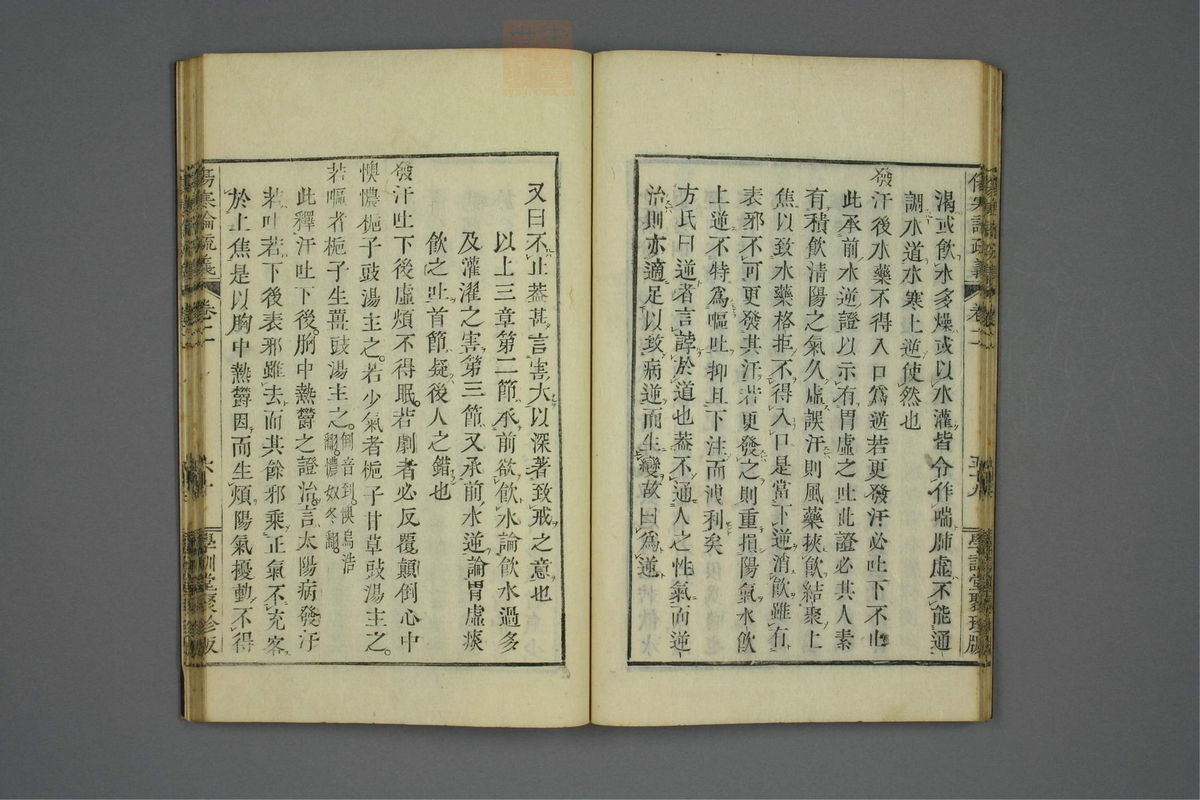 渴或飲水多燥或以水灌皆令作喘肺虛不能通
調水道水寒上逆使然也
發汗後水藥不得入口爲逆若更發汗必吐下不止
此承前水逆證以示有胃虛之吐此證必其人素
有積飲清陽之氣久虛誤汗則風藥挾飲結聚上
焦以致水藥格拒不得入口是當下逆消飲雖有
表邪不可更發其汗若更發之則重損陽氣水飲
上逆不特爲嘔吐抑且下注而洩利矣
方氏曰逆者言誖於道也葢不通人之性氣而逆
治則亦適足以攻病逆而生變故曰爲逆
又曰不止葢甚言害大以深著致戒之意也
以上三章第二節承前欲飲水論飲水過多
及灌濯之害第三節又承前水逆論胃虛痰
飲之吐首節疑後人之錯也
發汗吐下後虛煩不得眠若劇者必反覆顛倒心中
懊憹梔子豉湯主之若少氣者梔子甘草豉湯主之
若嘔者梔子生薑豉湯主之倒音到懊烏浩翻憹奴冬翻
此釋汗吐下後胸中熱鬱之證治言太陽病發汗
若吐若下後表邪雖去而其餘邪乘正氣不充客
於上焦是以胸中熱鬱因而生煩陽氣擾動不得
傷寒論疏義
卷二
學訓堂聚珍版